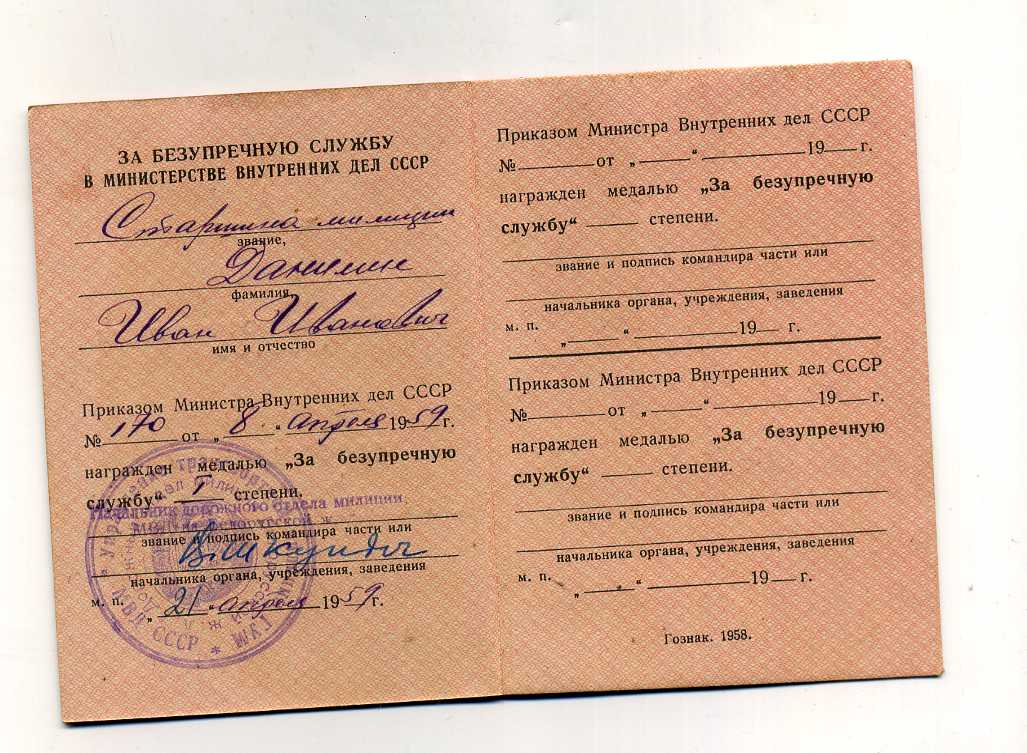 ЗА БЕЗУПРЕЧНУЮ СЛУЖБУ
В МИНИСТЕРСТВЕ ВНУТРЕННИХ ДЕЛ СССР
Старшина милиции
звание,
Данилин
фамилия
Иван Иванович
имя и отчество
Приказом Министра Внутренних дел СССР
№ 170 от „ 8 “ апреля 1959 г.
награжден медалью „За безупречную
службу“ I степени.
Начальник дорожного отдела милиции
МВД на Белорусской ж.
звание и подпись командира части или
начальника органа, учреждения, заведения
м. п. „ 21 “ апреля 1959 г.
МВД СССР * ГУМ *
Приказом Министра Внутренних дел СССР
№ от „ “ 19 г.
награжден медалью „За безупречную
службу“ степени.
звание и подпись командира части или
начальника органа, учреждения, заведения
м. п. „ “ 19 г.
Приказом Министра Внутренних дел СССР
№ от „ “ 19 г.
награжден медалью „За безупречную
службу“ степени.
звание и подпись командира части или
начальника органа, учреждения, заведения
м. п. „ “ 19 г.
Гознак. 1958.